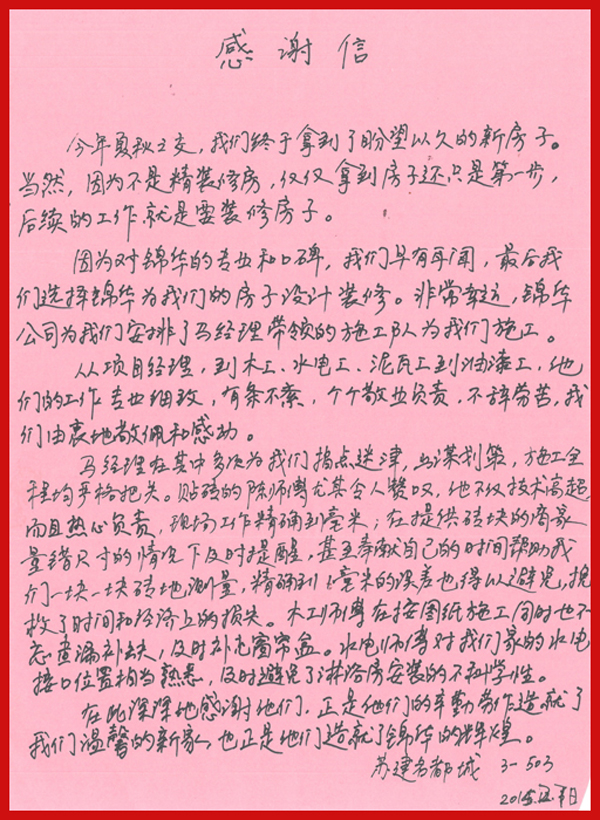 感谢信
今年夏秋之交，我们终于拿到了盼望以久的新房子。
当然，因为不是精装修房，仅仅拿到房子还只是第一步，
后续的工作就是要装修房子。
因为对锦华的专业和口碑，我们早有耳闻，最后我
们选择锦华为我们的房子设计装修。非常幸运，锦华
公司为我们安排了马经理带领的施工队为我们施工。
从项目经理，到木工、水电工、泥瓦工到油漆工，他
们的工作专业细致，有条不紊，个个敬业负责，不辞劳苦，我
们由衷地敬佩和感动。
马经理在其中多次为我们指点迷津，出谋划策，施工全
程均严格把关。贴砖的陈师傅尤其令人赞叹，他不仅技术高超
而且热心负责，现场工作精确到毫米；在提供砖块的商家
量错尺寸的情况下及时提醒，甚至奉献自己的时间帮助我
们一块一块砖地测量，精确到1毫米的误差也得以避免，挽
救了时间和经济上的损失。木工师傅在按图纸施工同时也不
忘查漏补缺，及时补充窗帘盒。水电师傅对我们家的水电
接口位置相当熟悉，及时避免了淋浴房安装的不科学性。
在此深深地感谢他们，正是他们的辛勤劳作造就了
我们温馨的新家，也正是他们造就了锦华的辉煌。
苏建名都城 3-503
2015.